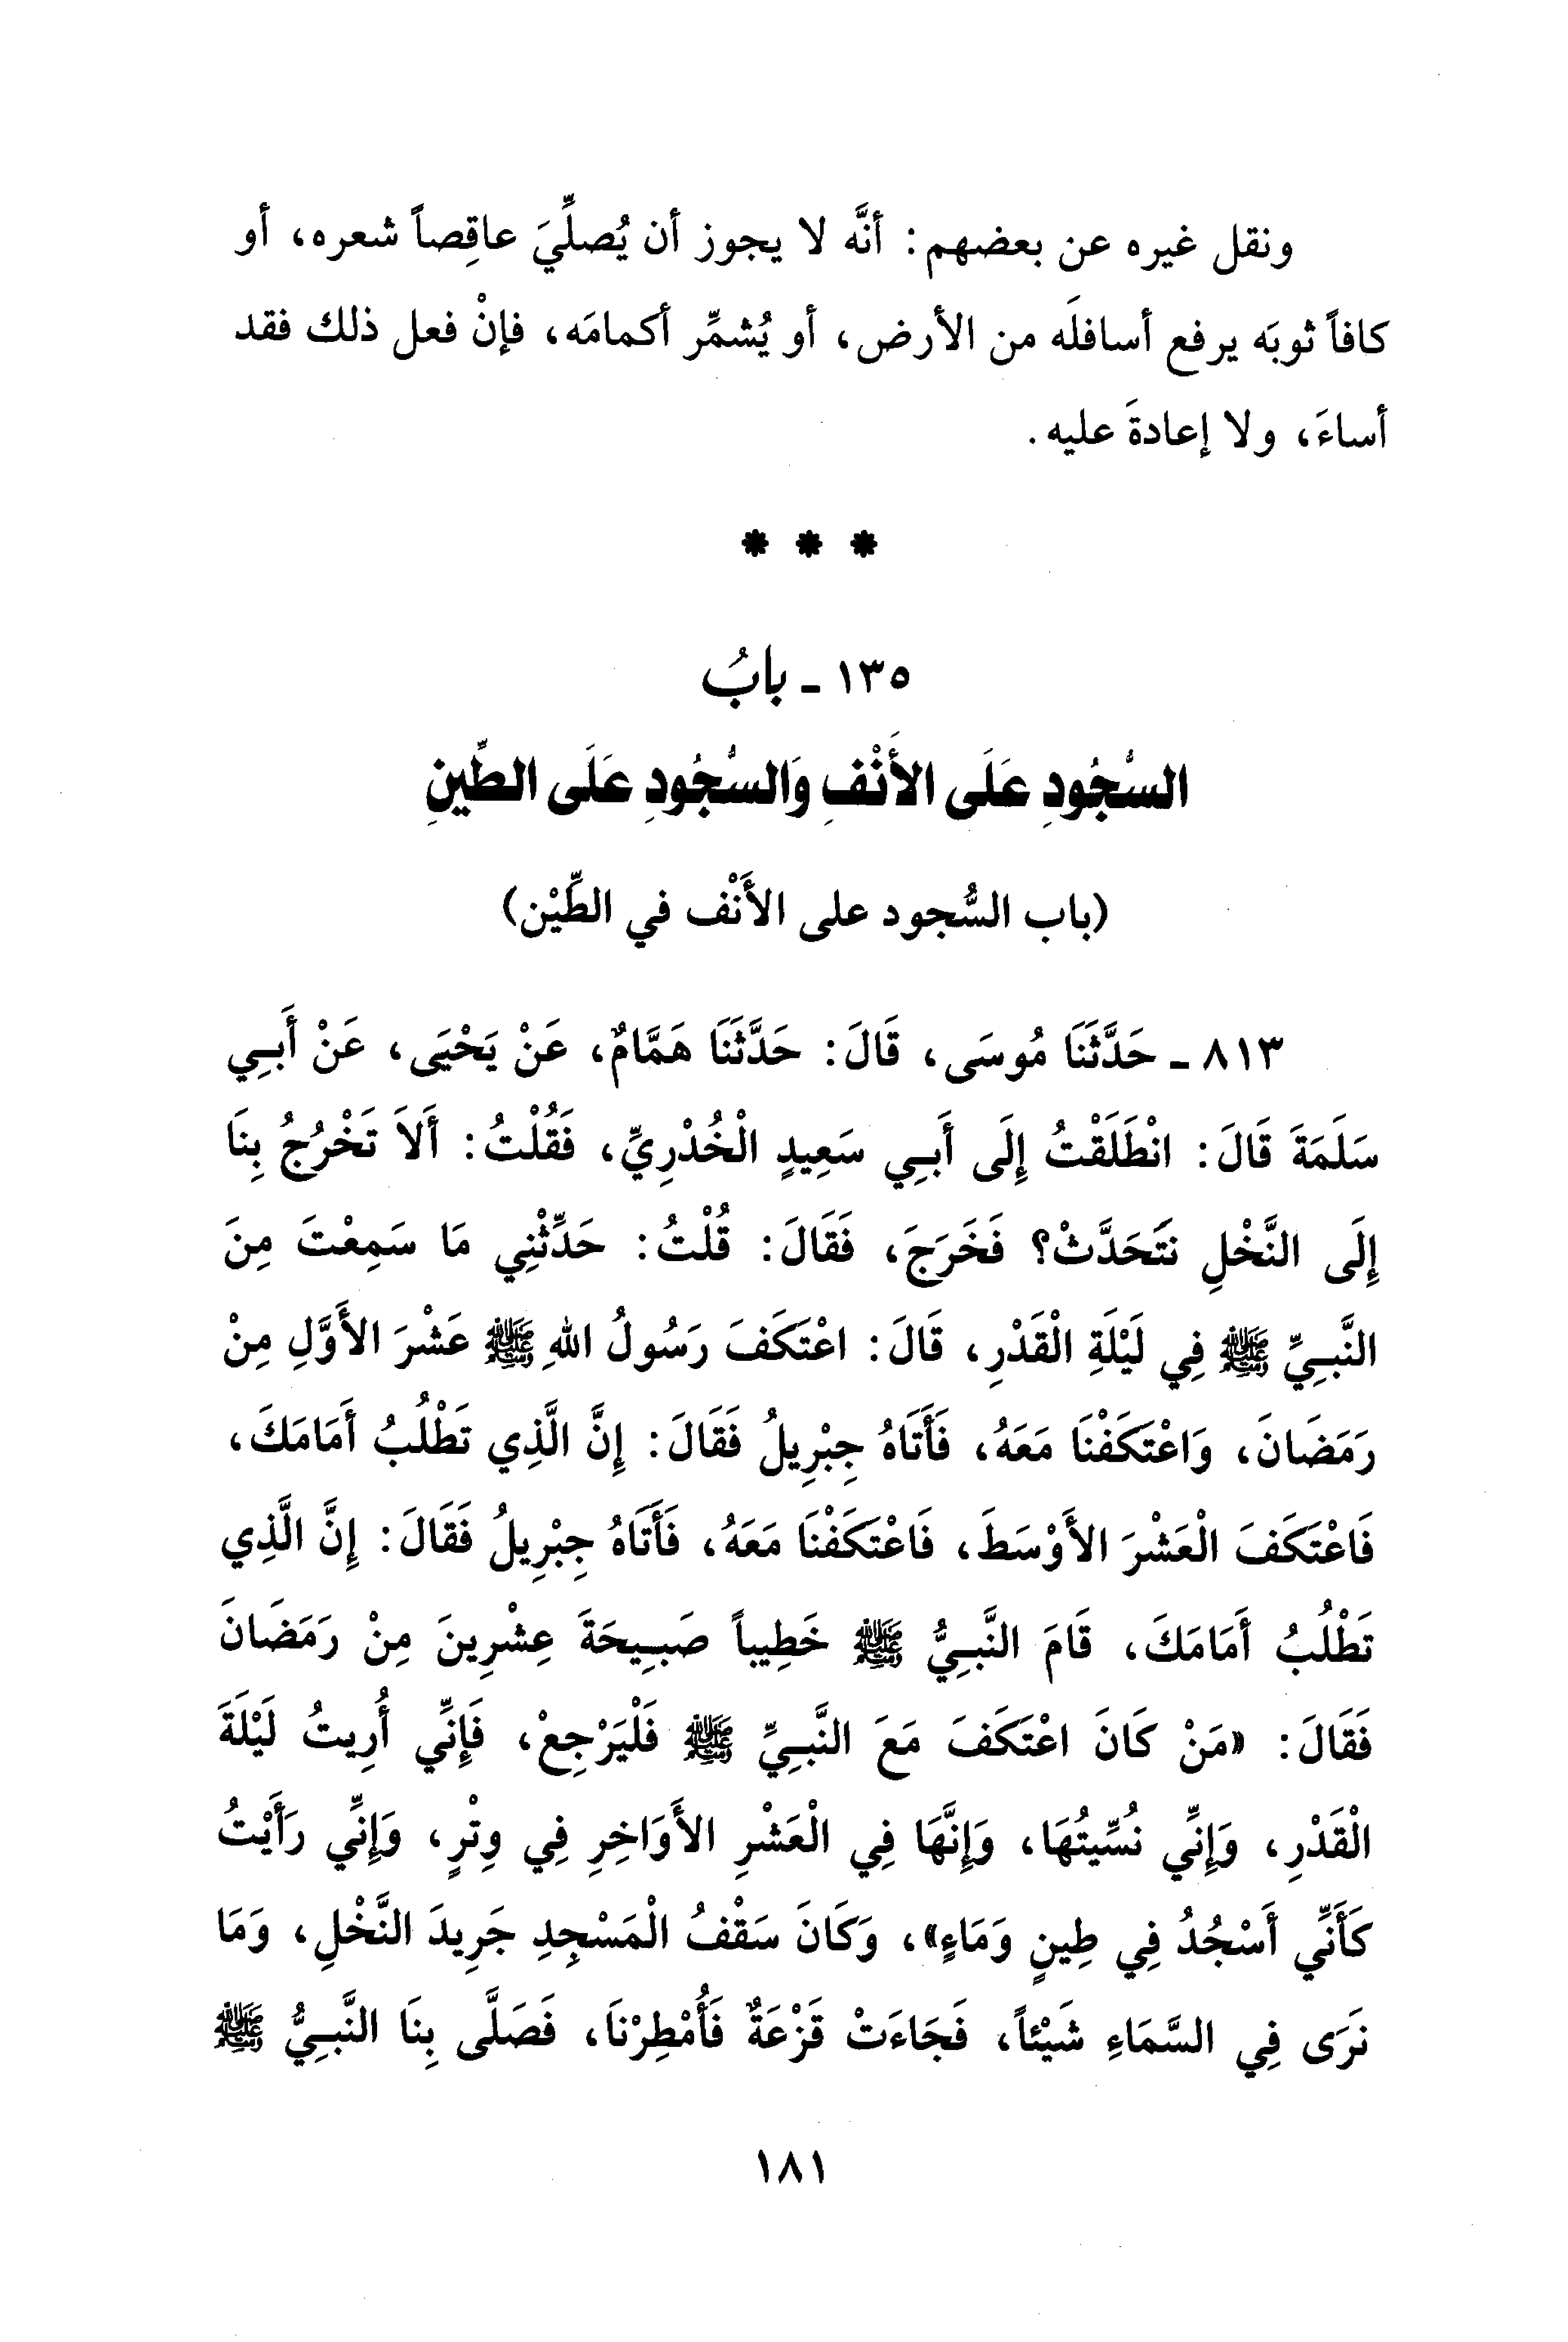 ونقل غيره عن بعضهم: أنَّه لا يجوز أن يُصلِّيَ عاقِصاً شعره، أو
كافاً ثوبَه يرفع أسافلَه من الأرض، أو يُشمِّر أكمامَه، فإنْ فعل ذلك فقد
أساءَ، ولا إعادةَ عليه.
* * *
١٣٥ ـ بابُ
السُّجُودِ عَلَى الأَنْفِ وَالسُّجُودِ عَلَى الطِّينِ
(باب السُّجود على الأَنْف في الطِّيْن)
٨١٣ ـ حَدَّثَنَا مُوسَى، قَالَ: حَدَّثَنَا هَمَّامٌ، عَنْ يَحْيَى، عَنْ أَبِي
سَلَمَةَ قَالَ: انْطَلَقْتُ إِلَى أَبِي سَعِيدٍ الْخُدْرِيِّ، فَقُلْتُ: أَلاَ تَخْرُجُ بِنَا
إِلَى النَّخْلِ نتَحَدَّثْ؟ فَخَرَجَ، فَقَالَ: قُلْتُ: حَدِّثْنِي مَا سَمِعْتَ مِنَ
النَّبِيِّ ﷺ فِي لَيْلَةِ الْقَدْرِ، قَالَ: اعْتَكَفَ رَسُولُ اللهِ ﷺ عَشْرَ الأَوَّلِ مِنْ
رَمَضَانَ، وَاعْتَكَفْنَا مَعَهُ، فَأَتَاهُ جِبْرِيلُ فَقَالَ: إِنَّ الَّذِي تَطْلُبُ أَمَامَكَ،
فَاعْتَكَفَ الْعَشْرَ الأَوْسَطَ، فَاعْتَكَفْنَا مَعَهُ، فَأَتَاهُ جِبْرِيلُ فَقَالَ: إِنَّ الَّذِي
تَطْلُبُ أَمَامَكَ، قَامَ النَّبِيُّ ﷺ خَطِيباً صَبِيحَةَ عِشْرِينَ مِنْ رَمَضَانَ
فَقَالَ: «مَنْ كَانَ اعْتَكَفَ مَعَ النَّبِيِّ ﷺ فَلْيَرْجِعْ، فَإِنِّي أُرِيتُ لَيْلَةَ
الْقَدْرِ، وَإِنِّي نُسِّيتُهَا، وَإِنَّهَا فِي الْعَشْرِ الأَوَاخِرِ فِي وِتْرٍ، وَإِنِّي رَأَيْتُ
كَأَنِّي أَسْجُدُ فِي طِينٍ وَمَاءٍ»، وَكَانَ سَقْفُ الْمَسْجِدِ جَرِيدَ النَّخْلِ، وَمَا
نَرَى فِي السَّمَاءِ شَيْئاً، فَجَاءَتْ قَزْعَةٌ فَأُمْطِرْنَا، فَصَلَّى بِنَا النَّبِيُّ ﷺ
١٨١